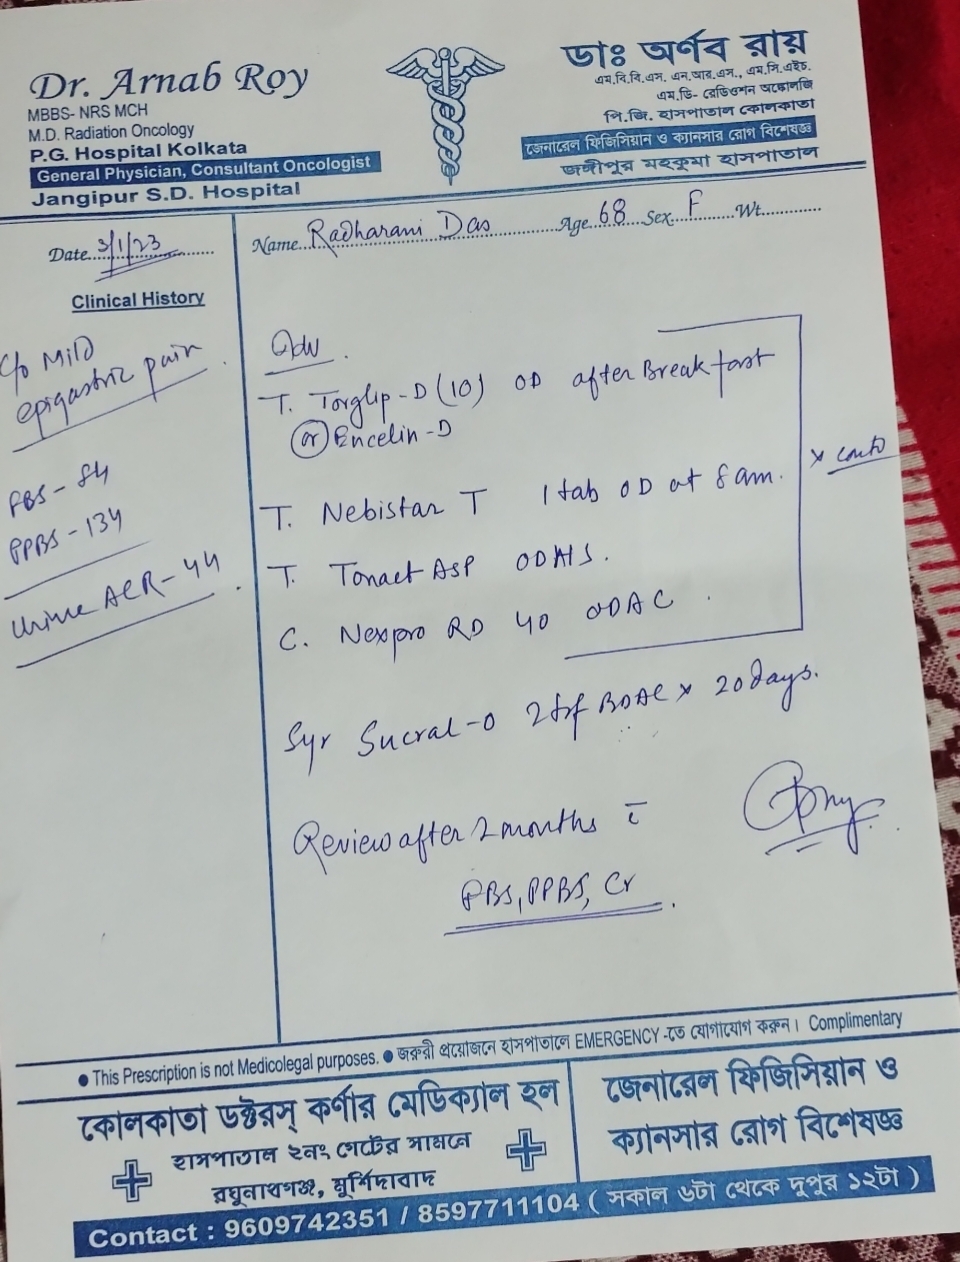 Dr. Arnab Roy
MBBS- NRS MCH
M.D. Radiation Oncology
P.G. Hospital Kolkata
General Physician, Consultant Oncologist
Jangipur S.D. Hospital
ডাঃ অর্ণব রায়
এম.বি.বি.এস. এন.আর.এস., এম.সি.এইচ.
এম.ডি- রেডিওশন অঙ্কোলজি
পি.জি. হাসপাতাল কোলকাতা
জেনারেল ফিজিসিয়ান ও ক্যানসার রোগ বিশেষজ্ঞ
জঙ্গীপুর মহকুমা হাসপাতাল
Date 3/1/23
Name Radharani Das Age 68 Sex F Wt
Clinical History
c/o Mild
epigastric pain
FBS - 84
PPBS - 134
Urine ACR - 44
Adv
T. Torglip-D (10) OD after Breakfast
or Encelin-D
T. Nebistar T 1 tab OD at 8 am.
T. Tonact ASP OD HS.
C. Nexpro RD 40 OD AC
x contd
Syr Sucral-O 2 tsf BDAC x 20 days.
Review after 2 months c̄
FBS, PPBS, Cr
● This Prescription is not Medicolegal purposes. ● জরুরী প্রয়োজনে হাসপাতালে EMERGENCY -তে যোগাযোগ করুন। Complimentary
কোলকাতা ডক্টরস্ কর্ণার মেডিক্যাল হল
হাসপাতাল ২নং গেটের সামনে
রঘুনাথগঞ্জ, মুর্শিদাবাদ
জেনারেল ফিজিসিয়ান ও
ক্যানসার রোগ বিশেষজ্ঞ
Contact : 9609742351 / 8597711104 ( সকাল ৬টা থেকে দুপুর ১২টা )